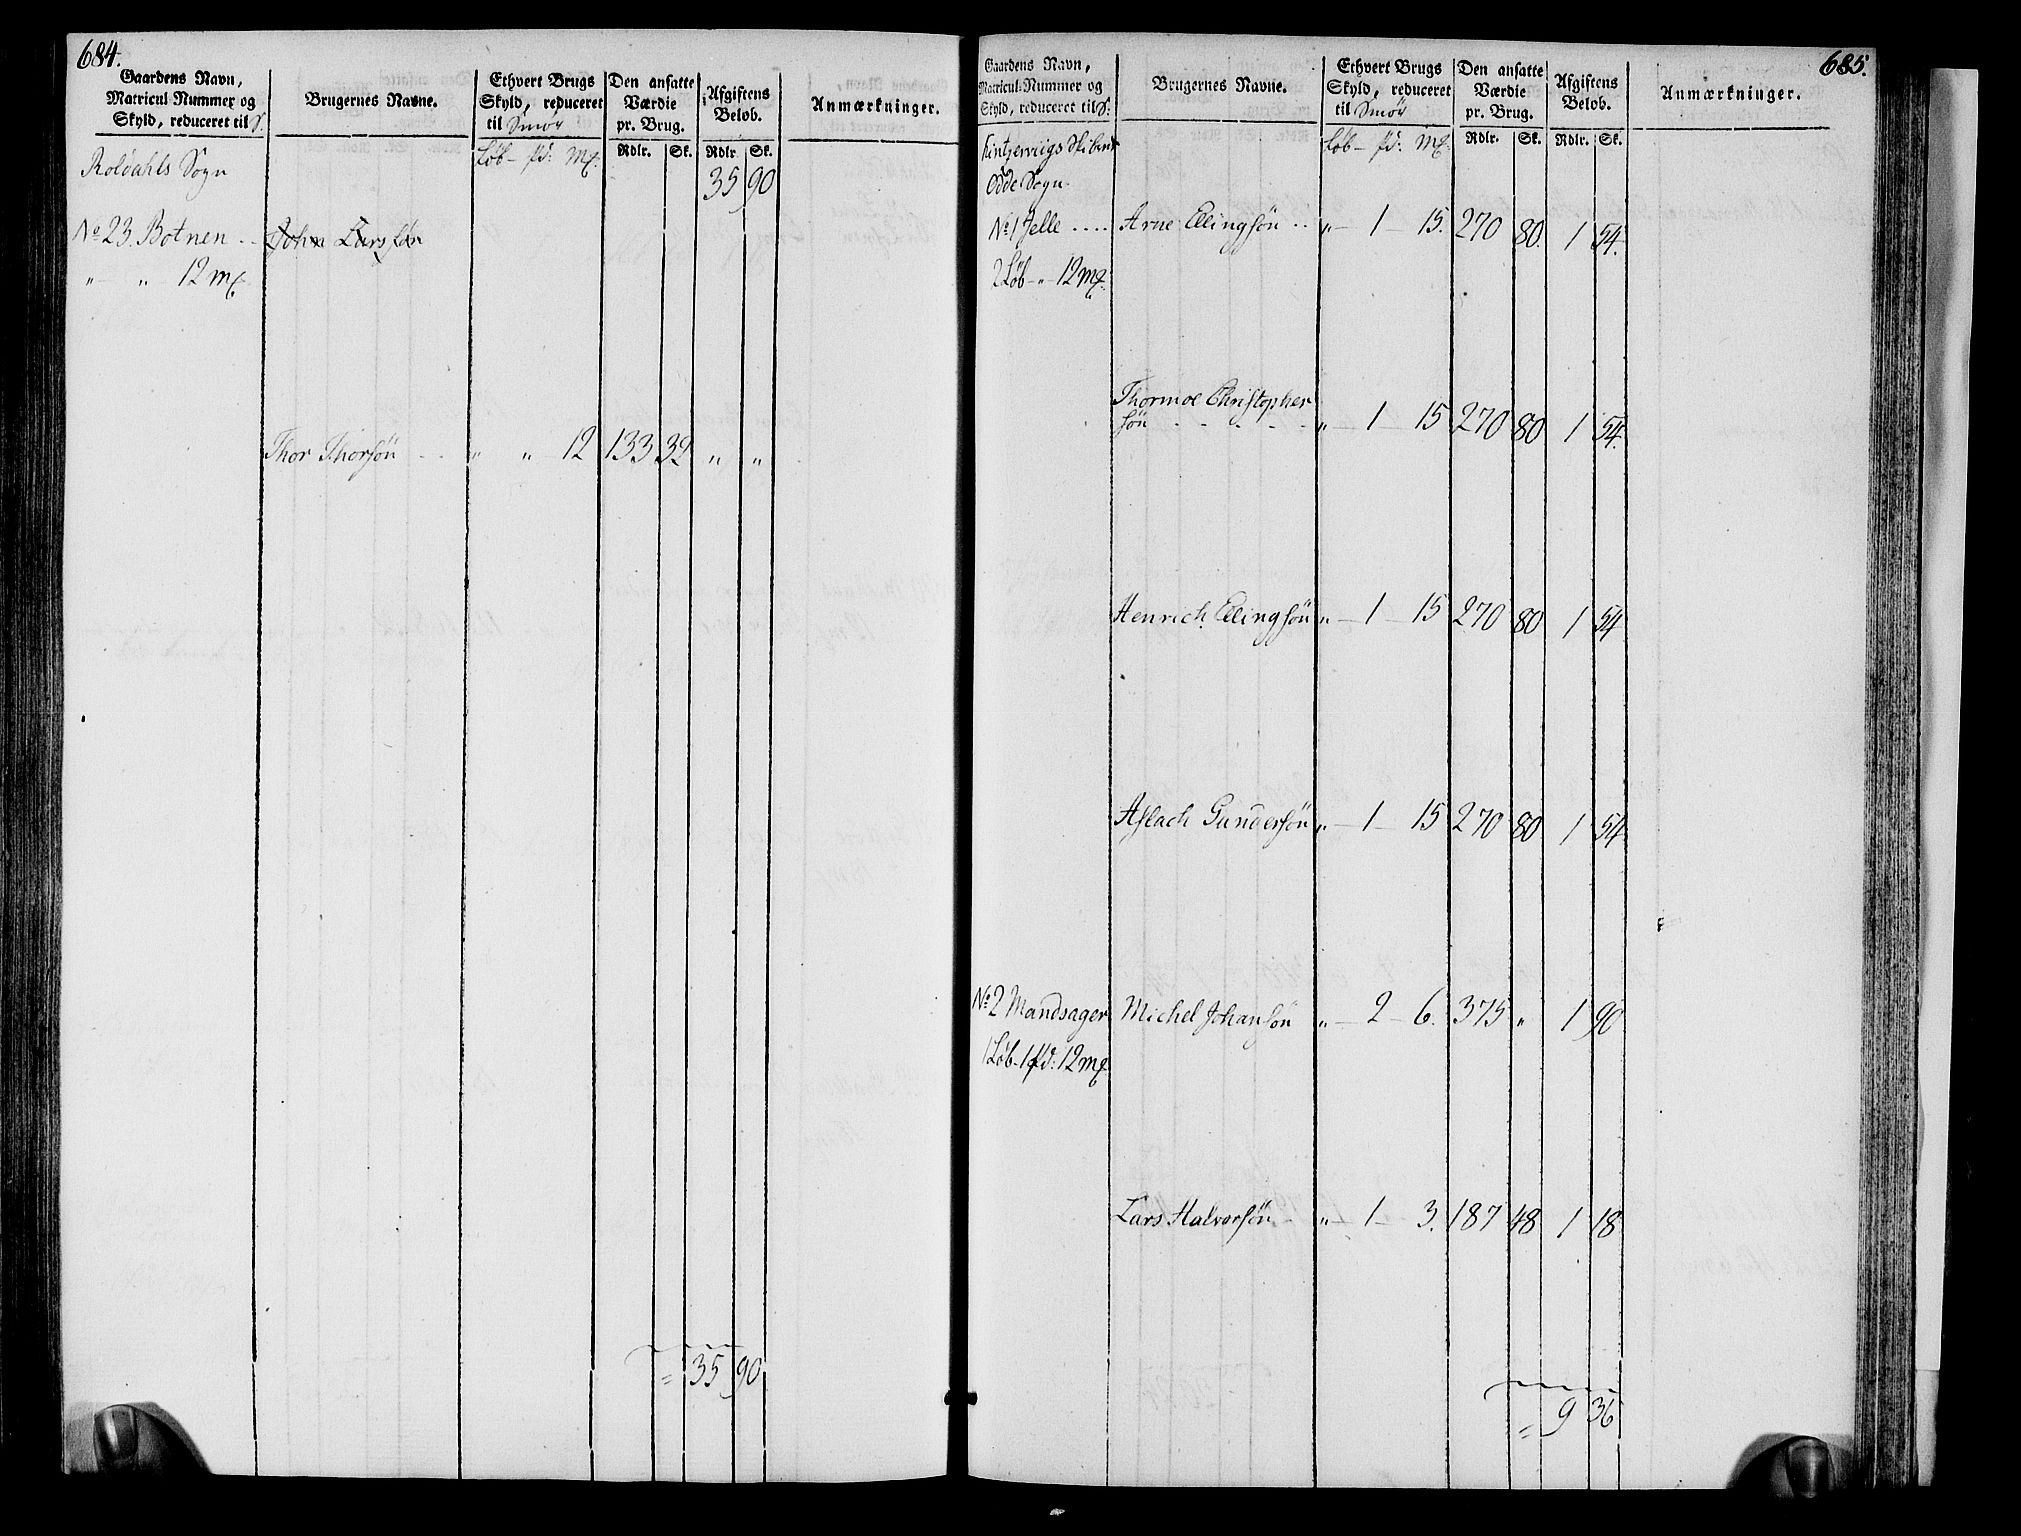 684.
Gaardens Navn, Matricul-Nummer og Skyld, reduceret til S.
Brugernes Navne.
Ethvert Brugs Skyld, reduceret til Smör
Den ansatte Værdie pr. Brug.
Afgiftens Beløb.
Anmærkninger.
Løb - pd: Mk:
Rdlr. Sk. Rdlr. Sk.
Roldahls Sogn
35 90
No 23 Botnen .. John Larssøn
" - " 12 mk.
Thor Thorsøn .. " " 12 133 32 " "
= 35 90
685.
Gaardens Navn, Matricul-Nummer og Skyld, reduceret til S:
Brugernes Navne.
Ethvert Brugs Skyld, reduceret til Smör
Den ansatte Værdie pr. Brug.
Afgiftens Beløb.
Anmærkninger.
Løb - pd: Mk:
Rdlr. Sk. Rdlr. Sk.
Odde Sogn
No 1 Jelle .... Arne Ellingsøn .. " - 1 - 15. 270 80. 1 54.
2 Løb - " - 12 mk.
Thormoe Christopher
søn - - - - - " - 1 - 15 270 80 1 54.
Henrich Ellingsøn " - 1 - 15 270 80 1 54
Aslach Gundersøn " - 1 - 15 270 80 1 54
No 2 Mandsager Michel Johansøn " - 2 - 6. 375 " 1 90
1 Løb - 1 pd: 12 mk.
Lars Halvorsøn - " - 1 - 3. 187 48 1 18
= 9 36